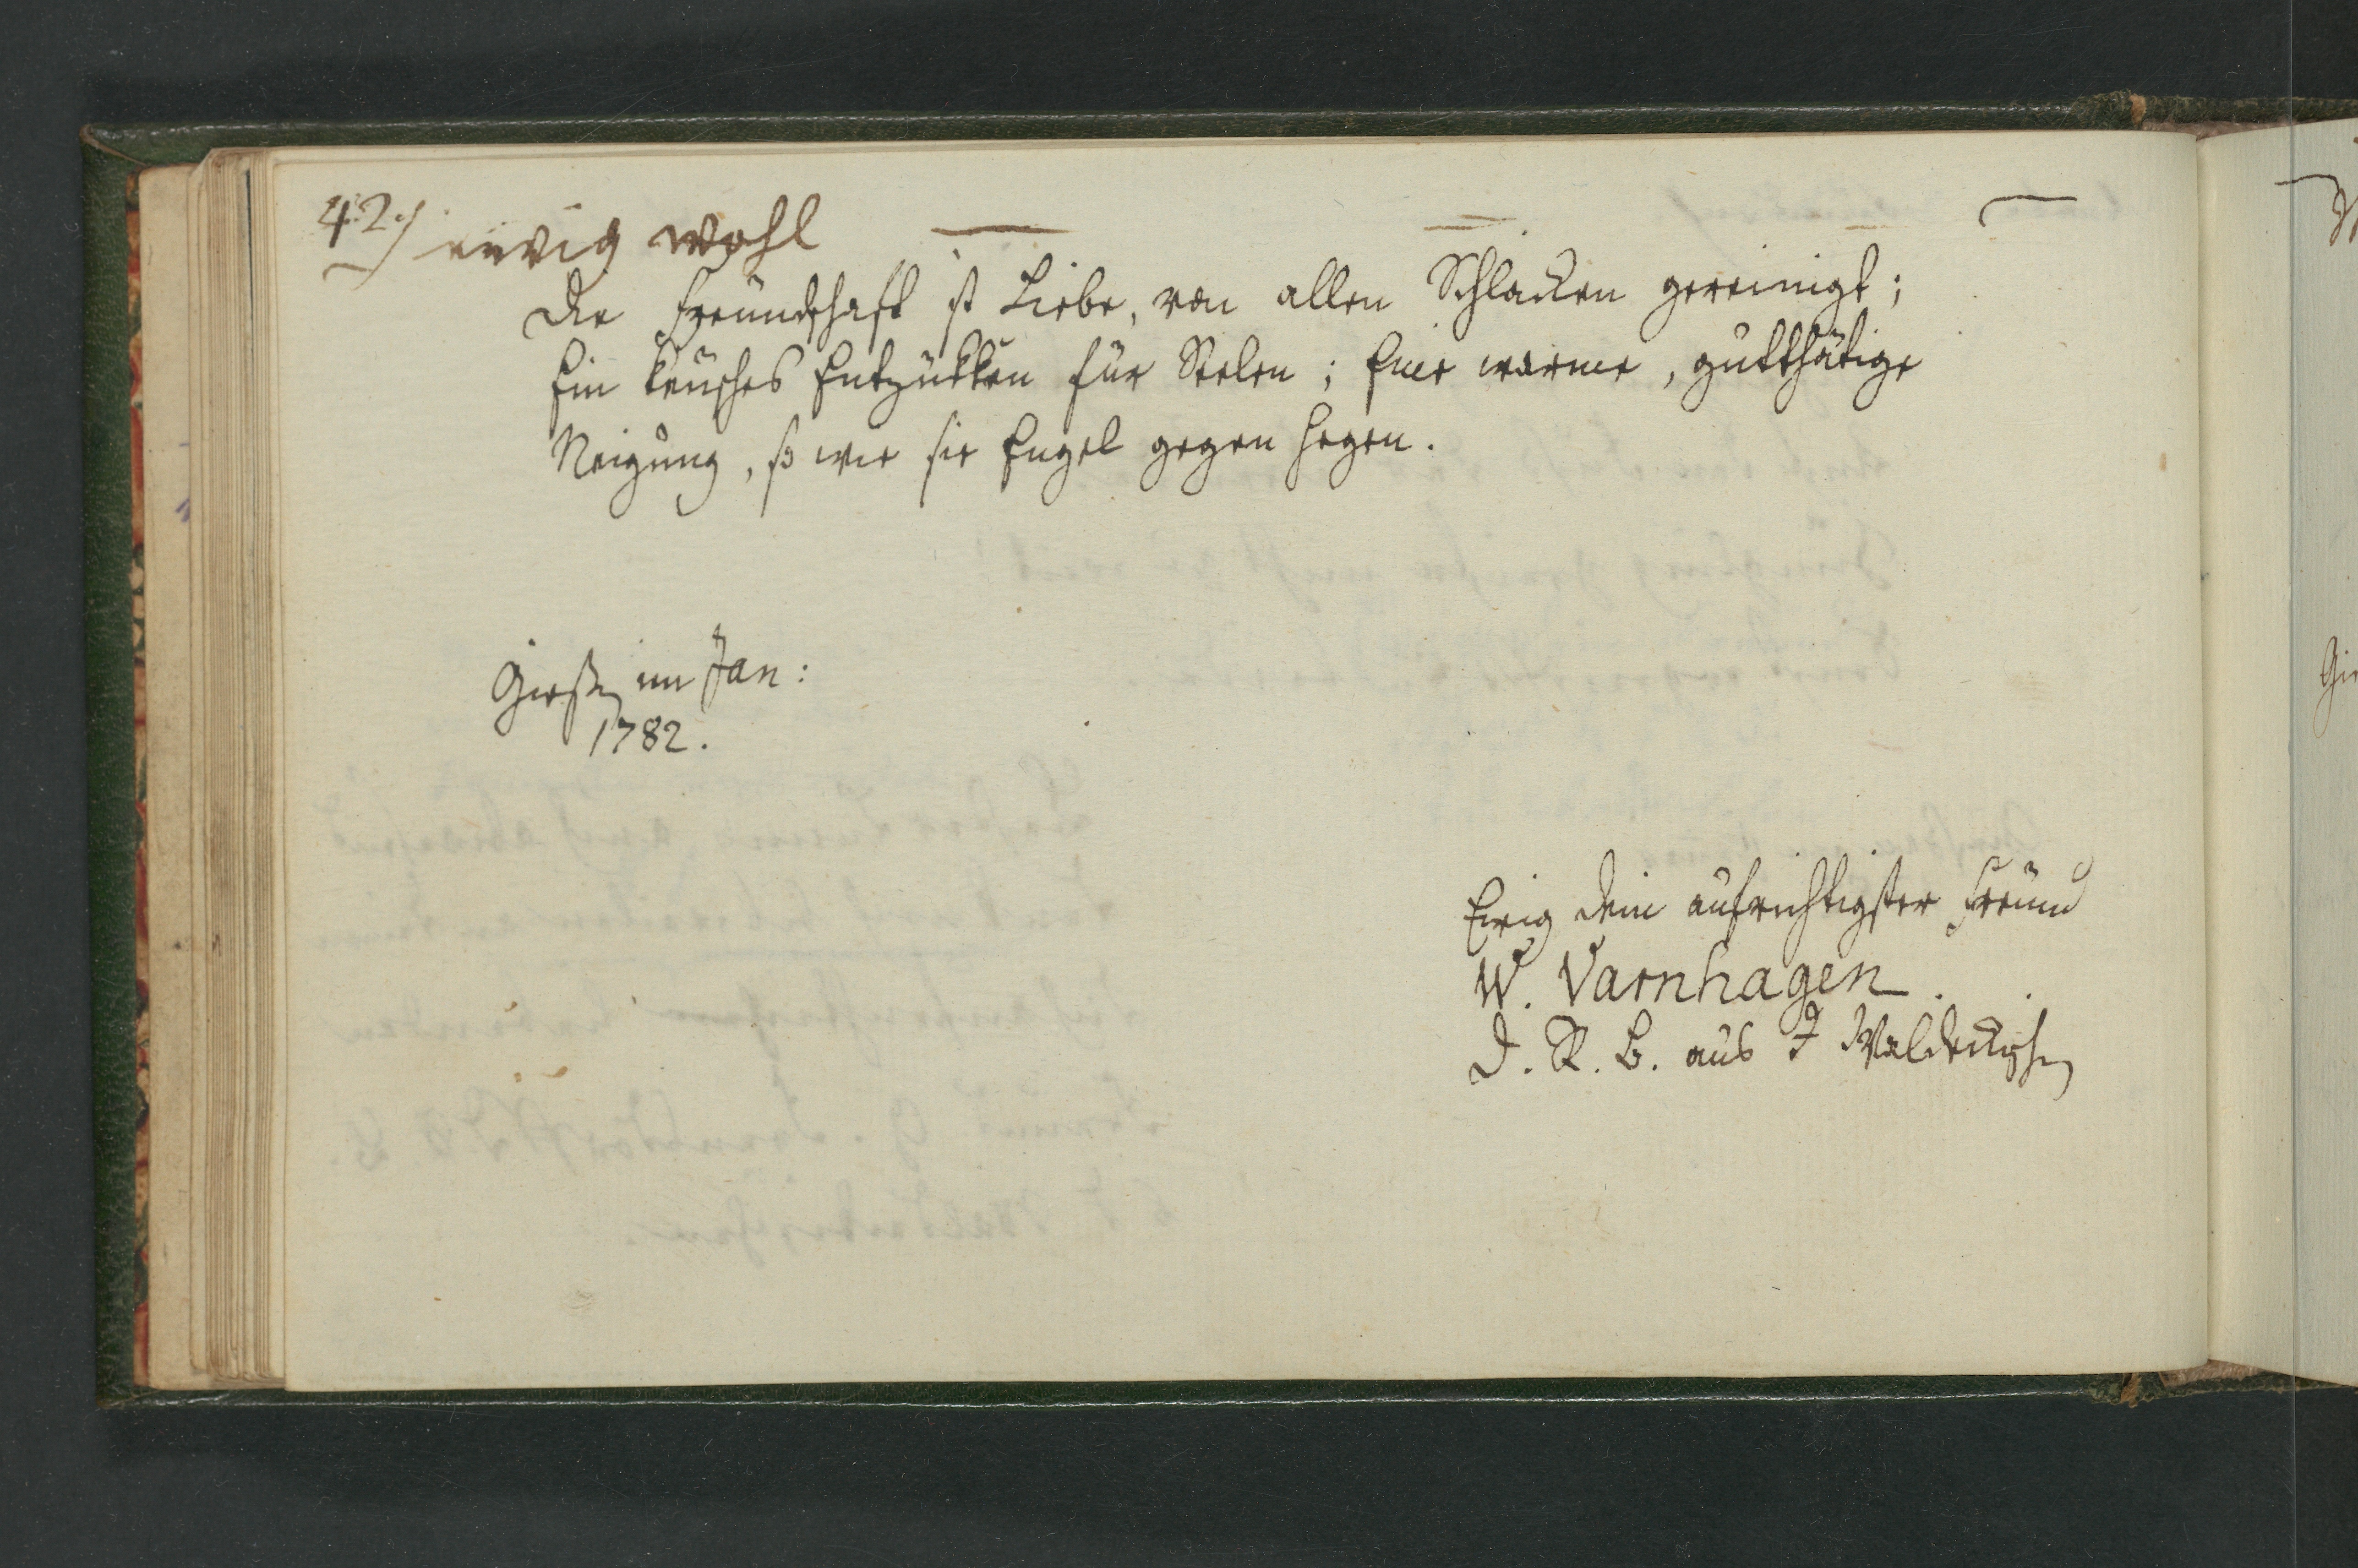 42.) ewig wohl
Die Freundschaft ist Liebe, von allen Schlacken gereinigt;
Ein keusches Entzükken für Seelen; Eine warme, gutthätige
Neigung, so wie sie Engel gegen hegen.
Giesen im Jan:
1782.
Ewig dein aufrichtigster Freund
W. Varnhagen.
D. R. B. aus d Waldeckschen